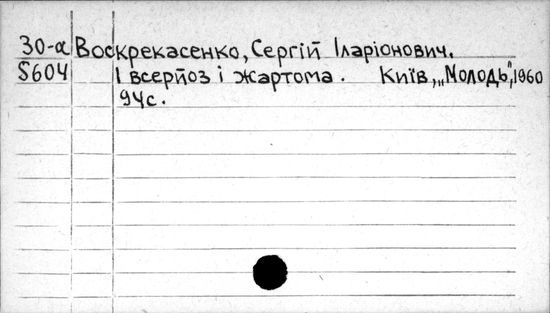 30-а Воскрекасенко, Сергій Іларіонович.
S604 І всерйоз і жартома. Київ, „Молодь", 1960
94с.